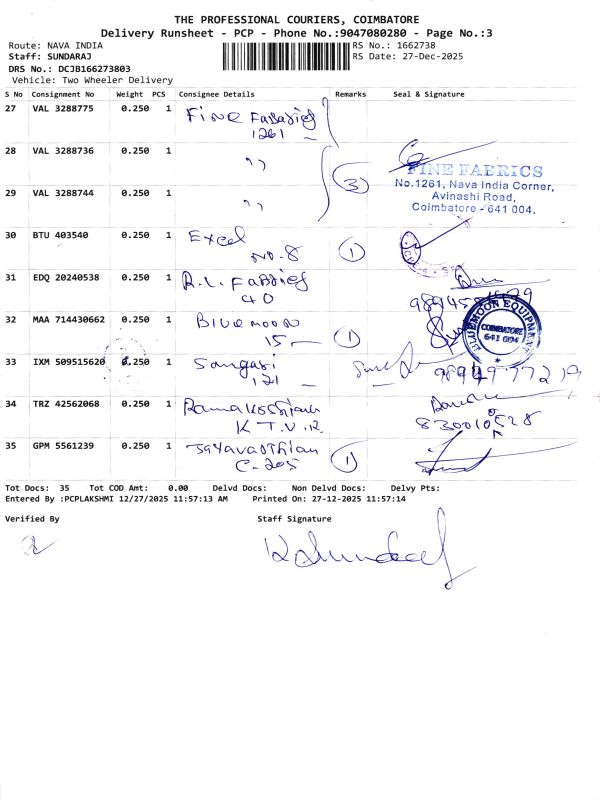 THE PROFESSIONAL COURIERS, COIMBATORE
Delivery Runsheet - PCP - Phone No.:9047080280 - Page No.:3
Route: NAVA INDIA RS No.: 1662738
Staff: SUNDARAJ RS Date: 27-Dec-2025
DRS No.: DCJB166273803
Vehicle: Two Wheeler Delivery
S No Consignment No Weight PCS Consignee Details Remarks Seal & Signature
27 VAL 3288775 0.250 1 Fine Fabrics
1261
28 VAL 3288736 0.250 1 ,,
29 VAL 3288744 0.250 1 ,, 3
FINE FABRICS
No.1261, Nava India Corner,
Avinashi Road,
Coimbatore - 641 004.
30 BTU 403540 0.250 1 Excel
No. 8 1
31 EDQ 20240538 0.250 1 R.L. Fabrics
40
32 MAA 714430662 0.250 1 Bluemoon
15 1
BLUEMOON EQUIPMENT
COIMBATORE
641 004
33 IXM 509515620 0.250 1 Sangavi
121
34 TRZ 42562068 0.250 1
K.T.V.R.
35 GPM 5561239 0.250 1
C-205 1
Tot Docs: 35 Tot COD Amt: 0.00 Delvd Docs: Non Delvd Docs: Delvy Pts:
Entered By :PCPLAKSHMI 12/27/2025 11:57:13 AM Printed On: 27-12-2025 11:57:14
Verified By Staff Signature